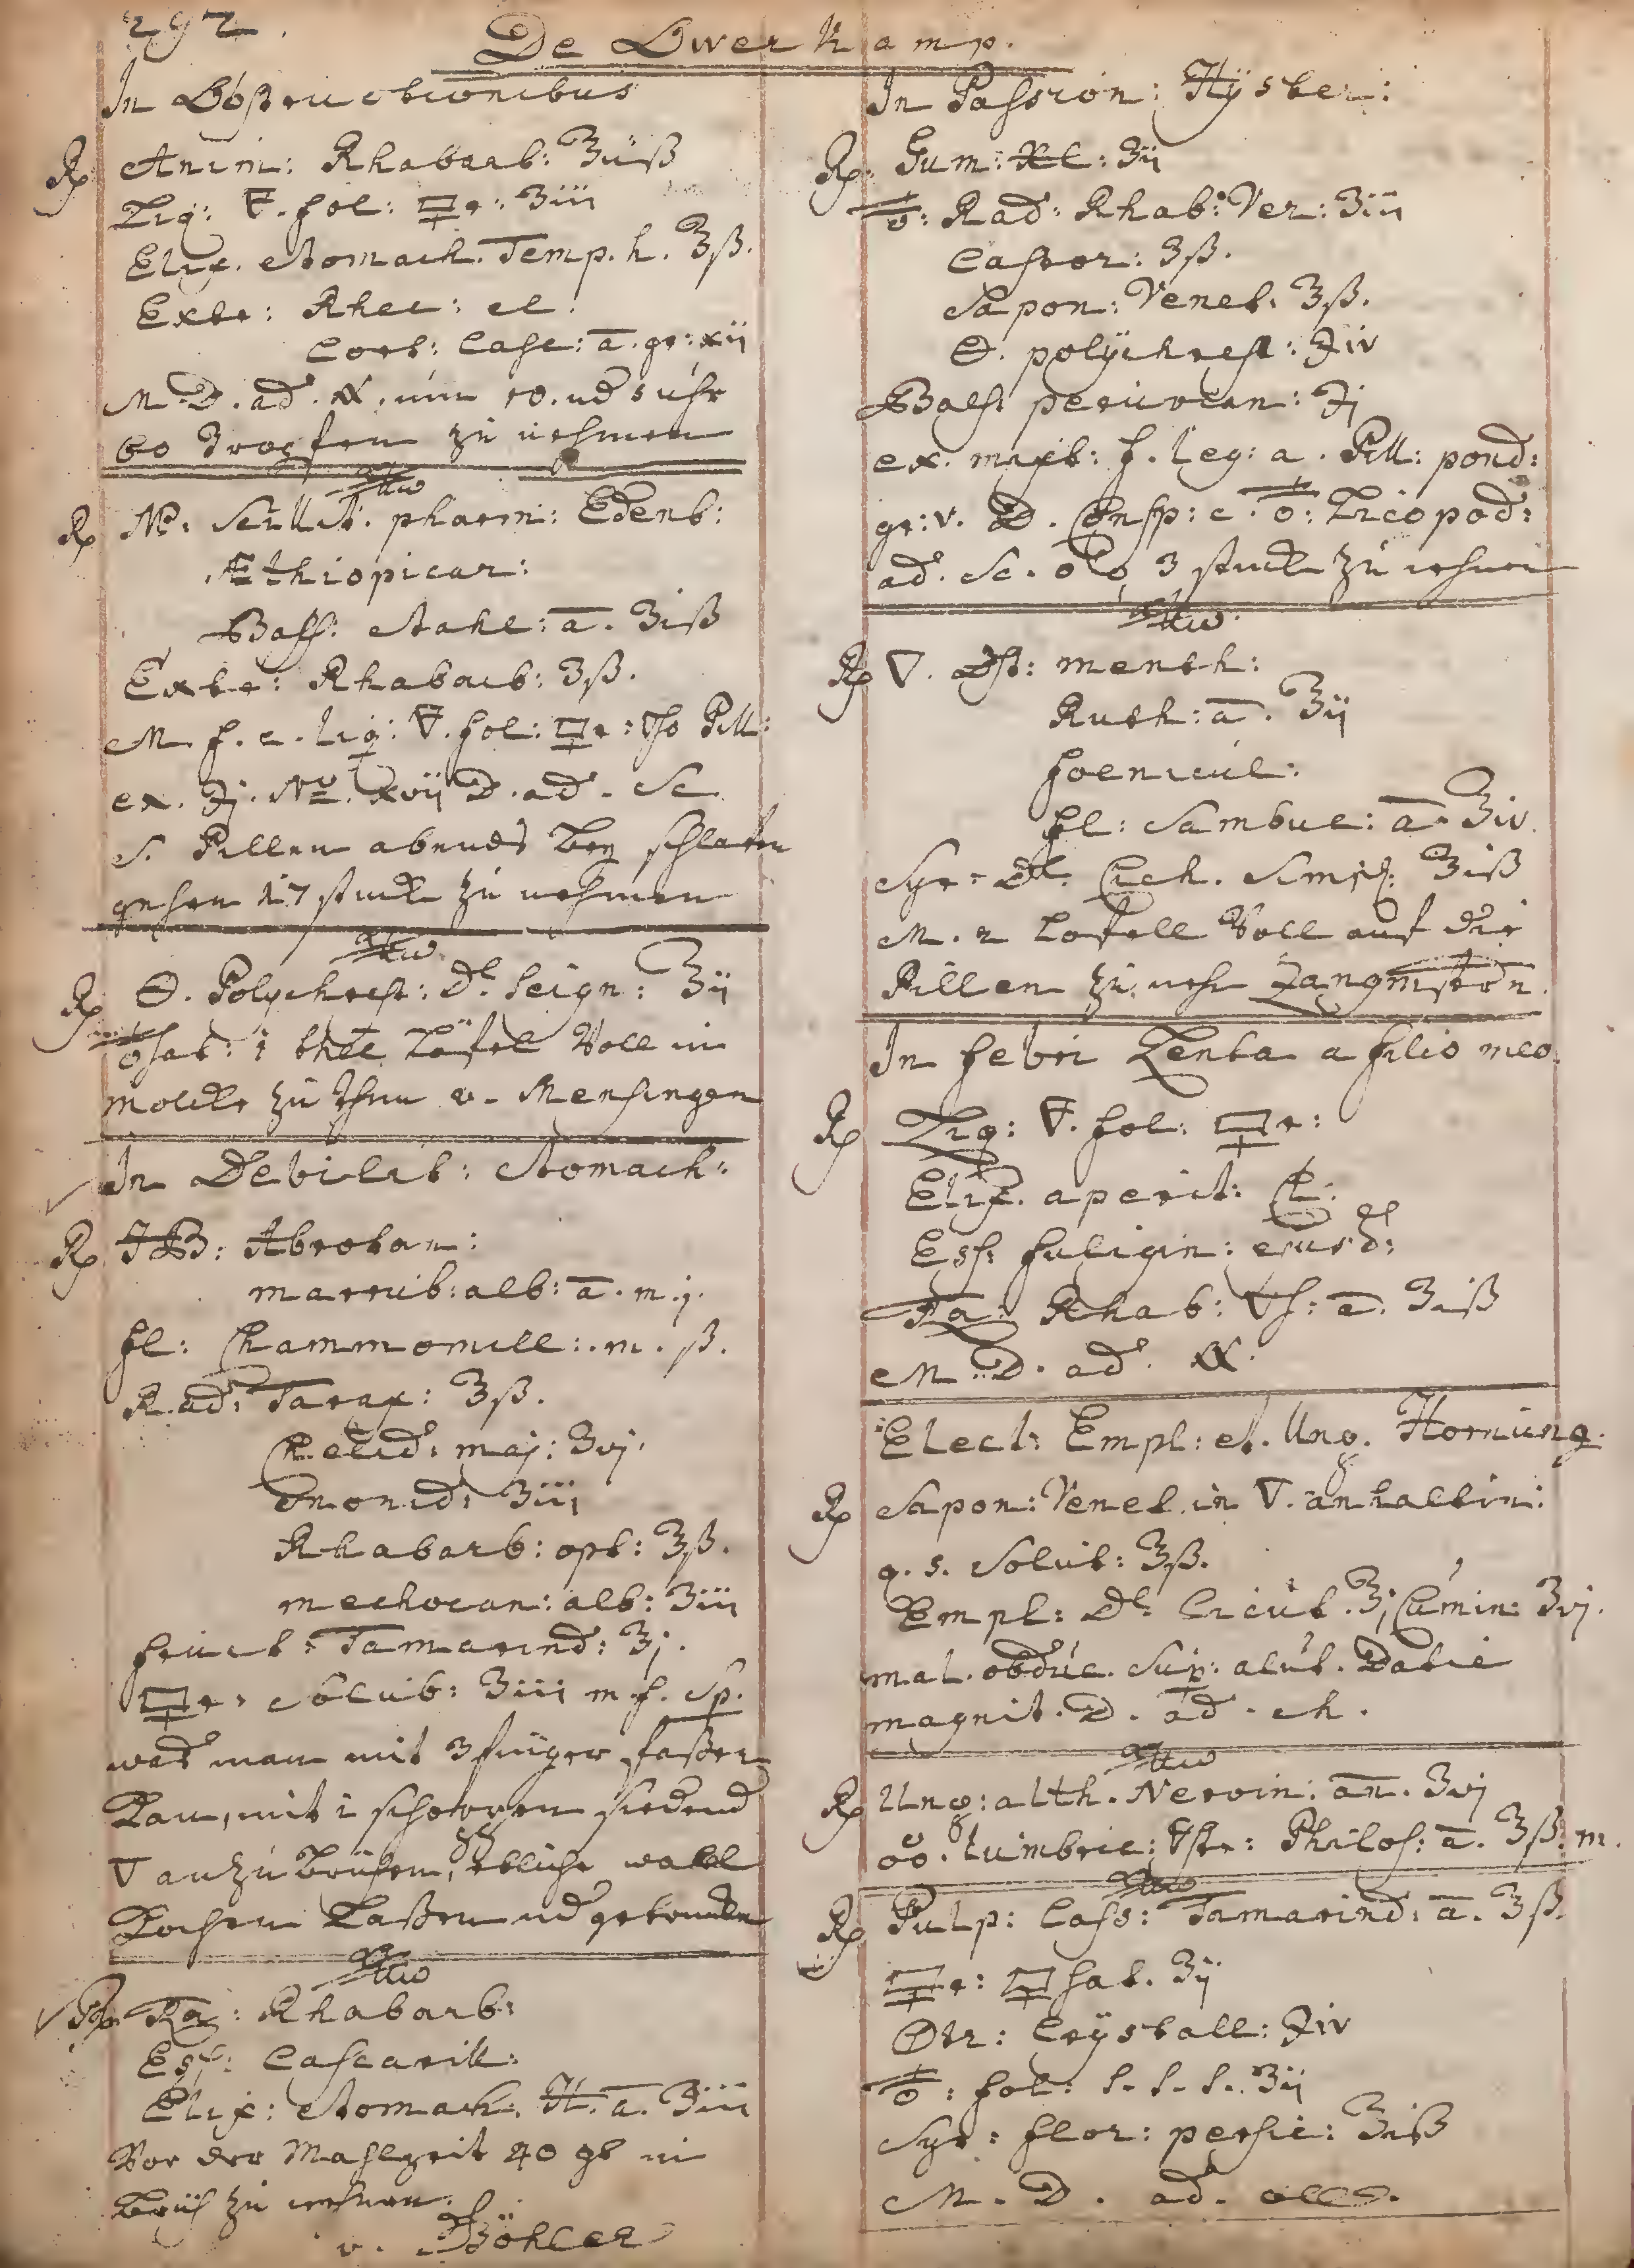 292.
De Overkamp.
In Obstructionibus
Rx Anim: Rhabarb: ℥iiß
Liq: 🜃. fol: 🜿r: ʒiii
Elix. Stomach. Temp. h. ℥ß.
Extr: Rhei: el.
Cort: Casc: a̅. gr: xii
M. D. ad. um 10. ud 5 uhr
60 Tropfen zu nehmen
Rx Mp: Scillit. pharm: Edenb:
Æthiopicar:
Balss: Stahl: a̅. ʒiß
Extr: Rhabarb: ʒß.
M. f. c. liq: 🜃. fol: 🜿r: Pill:
ex. ℈j. No. xvii D. ad. Sc
S. Pillen abends bey schlafen
gehen 17 stuck zu nehmen
Rx Polychrest: de Seign: ℥ii
1 thee Löfel Voll in
Molcke zu thun v. Mensingen
In Debilit: Stomach:
Rx HB: Abrotan:
marrub: alb: a̅. m. j.
fl: Chammomill: m. ß.
Rad: Tarax: ℥ß.
Chelid: maj: ʒvj.
Ononid: ʒiii
Rhabarb: opt: ℥ß.
mechocan: alb: ʒiii
fruct: Tamarind: ℥j.
🜿r: Solub: ʒiii m. f. Sp.
was man mit 3 finger faßen
Kan, mit 1 schoppen siedend
🜄 anzu brühen, etliche wall
Kochen Laßen ud getruncken
Rx Ra: Rhabarb:
Ess: Cascarill:
Elix: Stomach. H. a̅. ʒiii
Vor der Mahlzeit 40 gt in
Brüh zu nehmen.
v. Böhler
In Passion: Hÿster:
Rx. Gum: ʒii
Rad: Rhab: Ver: ʒiii
Castor: ʒß.
Sapon: Venet: ʒß.
polÿchrest: ℈iv
Balss peruvian: ℈j
ex. mixt: f. leg: a. Pill: pond:
gr: v. D. Consp: c. Licopod:
ad. Sc. 3 stuck zu nehmen
Rx 🜄. Dst: menth:
Ruth: a̅. ℥ii
foenicul:
fl: Sambuc: a̅. ℥iv.
Syr: de Cich. Simpl: ℥iß
M. 2 Lofell Voll auf die
Pillen zu neh Langmstrn.
In febri Lenta a filio meo.
Rx Liq: 🜃. fol: 🜿r:
Elix. aperit: Cl:
Ess: fuligin: ejusd:
Ra: Rhab: a̅. ʒiß
M. D. ad.
Elect: Empl: et. Ung. Hornung.
Rx Sapon: Venet. in 🜄. anhaltin:
q. s. Solut: ℥ß.
Empl: de Cicut. ℥j Cumin: ʒvj.
mal. obduc. Sup: alut. Datie
magnit. D. ad. ch.
Rx Ung: alth. Nervin: an̅. ʒvj
lumbric: Philos: a̅. ℥ß. m.
Rx Pulp: Cass: Tamarind: a̅. ℥ß.
🜿r: sat. ʒij
Crÿstall: ℈iv
fol: s. s. s. ʒij
Syr: flor: persic: ℥iß
M. D. ad. oll.